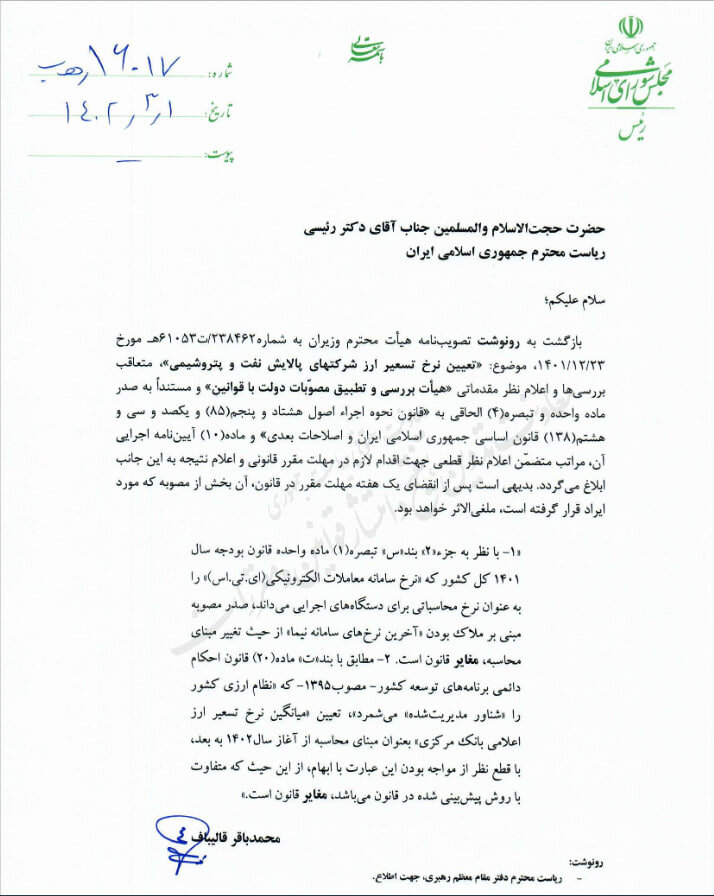 جمهوری اسلامی ایران
مجلس شورای اسلامی
رئیس
باسمه تعالی
شماره: ۱۶۰۱۷
تاریخ: ۱۴۰۲٫۳٫۱
پیوست: –
حضرت حجت‌الاسلام والمسلمین جناب آقای دکتر رئیسی
ریاست محترم جمهوری اسلامی ایران
سلام علیکم؛
بازگشت به رونوشت تصویب‌نامه هیأت محترم وزیران به شماره۲۳۸۴۶۲/ت۶۱۰۵۳هـ مورخ
۱۴۰۱/۱۲/۲۳، موضوع: «تعیین نرخ تسعیر ارز شرکتهای پالایش نفت و پتروشیمی»، متعاقب
بررسی‌ها و اعلام نظر مقدماتی «هیأت بررسی و تطبیق مصوّبات دولت با قوانین» و مستنداً به صدر
ماده واحده و تبصره(۴) الحاقی به «قانون نحوه اجراء اصول هشتاد و پنجم(۸۵) و یکصد و سی و
هشتم(۱۳۸) قانون اساسی جمهوری اسلامی ایران و اصلاحات بعدی» و ماده(۱۰) آیین‌نامه اجرایی
آن، مراتب متضمّن اعلام نظر قطعی جهت اقدام لازم در مهلت مقرر قانونی و اعلام نتیجه به این جانب
ابلاغ می‌گردد. بدیهی است پس از انقضای یک هفته مهلت مقرر در قانون، آن بخش از مصوبه که مورد
ایراد قرار گرفته است، ملغی‌الاثر خواهد بود.
«۱- با نظر به جزء«۲» بند«س» تبصره(۱) ماده واحده قانون بودجه سال
۱۴۰۱ کل کشور که «نرخ سامانه معاملات الکترونیکی(ای.تی.اس)» را
به عنوان نرخ محاسباتی برای دستگاه‌های اجرایی می‌داند، صدر مصوبه
مبنی بر ملاک بودن «آخرین نرخ‌های سامانه نیما» از حیث تغییر مبنای
محاسبه، مغایر قانون است. ۲- مطابق با بند«ت» ماده(۲۰) قانون احکام
دائمی برنامه‌های توسعه کشور- مصوب۱۳۹۵- که «نظام ارزی کشور
را «شناور مدیریت‌شده» می‌شمرد»، تعیین «میانگین نرخ تسعیر ارز
اعلامی بانک مرکزی» بعنوان مبنای محاسبه از آغاز سال۱۴۰۲ به بعد،
با قطع نظر از مواجه بودن این عبارت با ابهام، از این حیث که متفاوت
با روش پیش‌بینی شده در قانون می‌باشد، مغایر قانون است.»
محمدباقر قالیباف
رونوشت:
- ریاست محترم دفتر مقام معظم رهبری، جهت اطلاع.